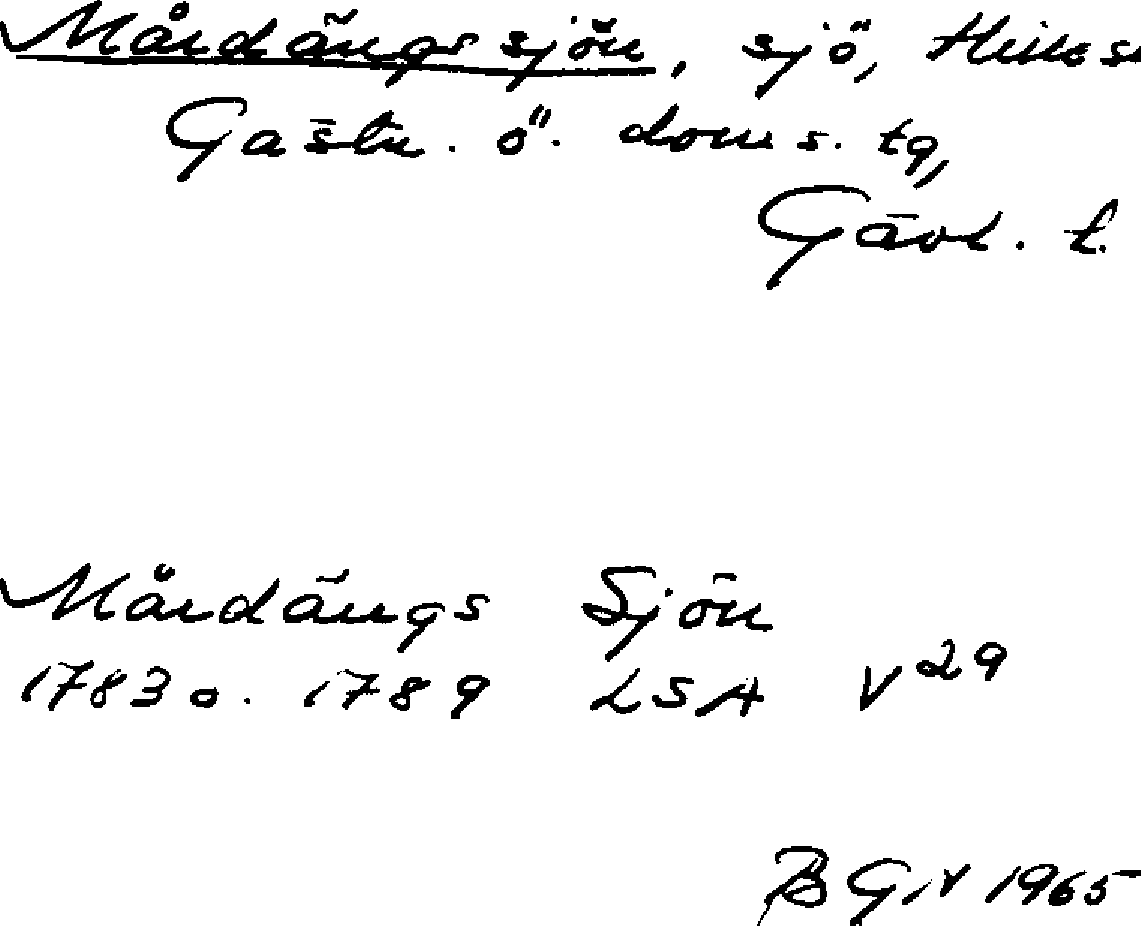 Mårdängssjön, sjö, Hilles
Gästr. ö. doms. tg,
Gävl. l.
Mårdängs Sjön
1783 o. 1789 LSA V 29
1965